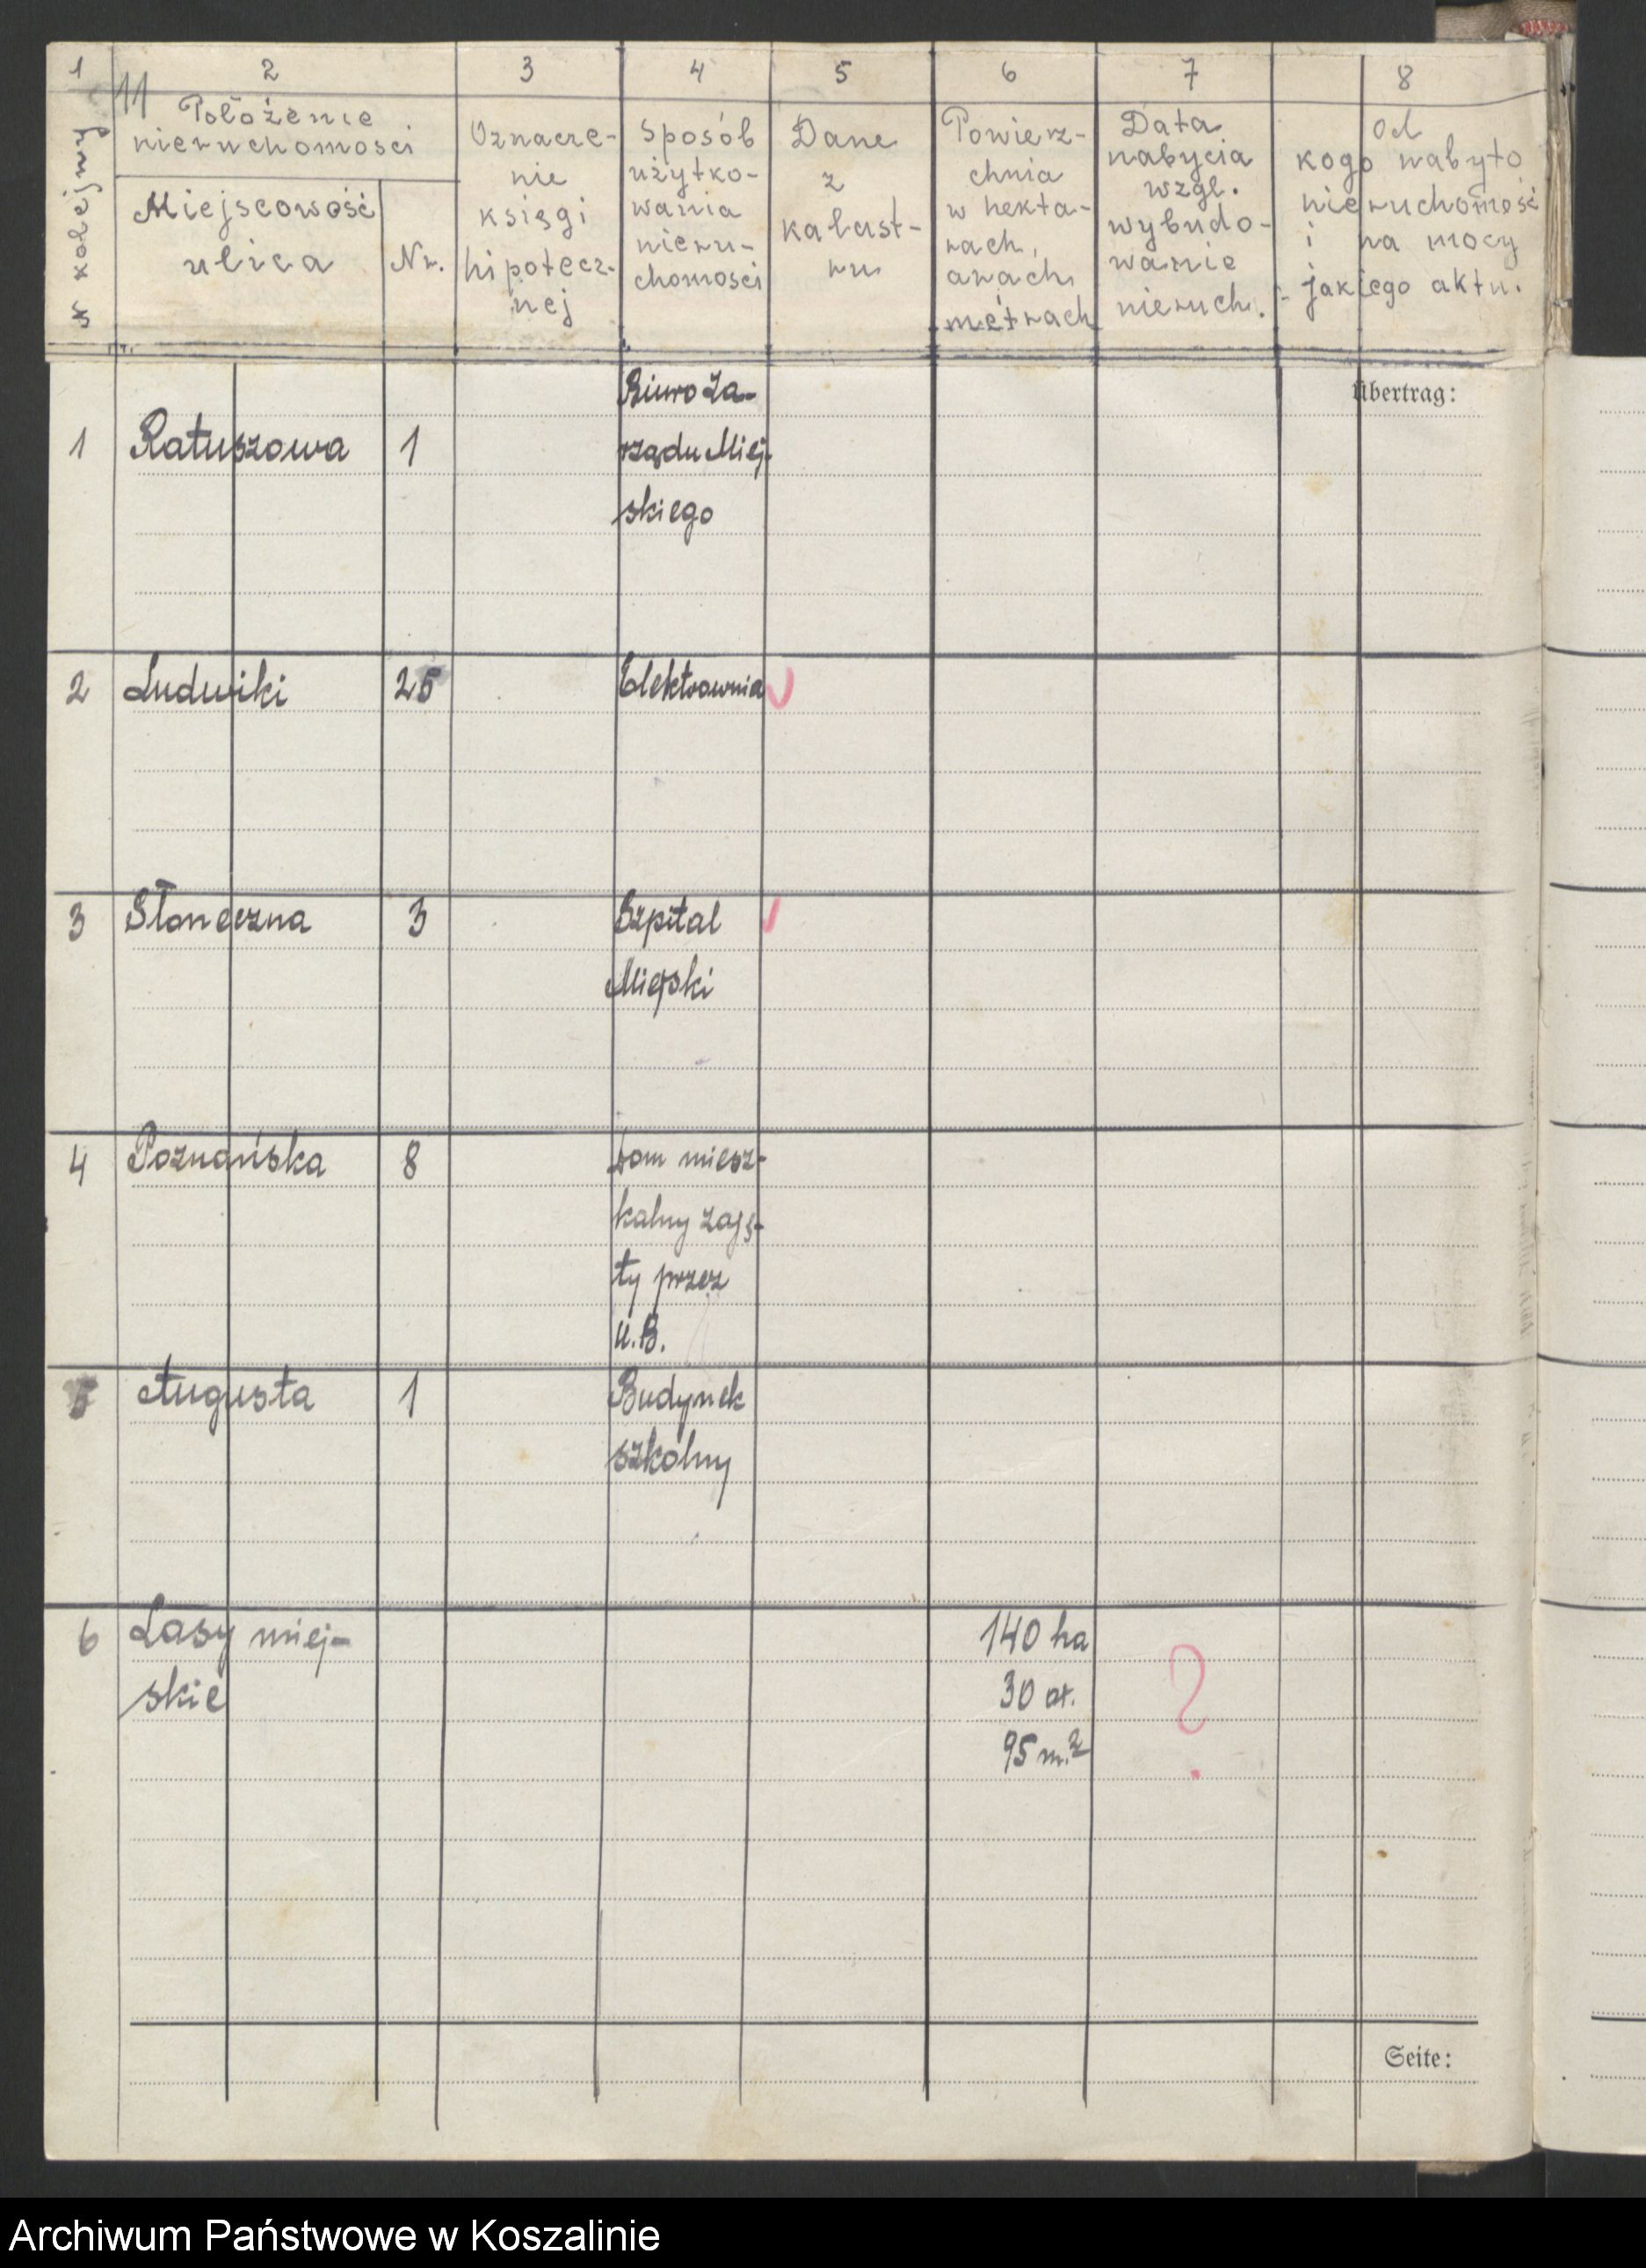 1 2 3 4 5 6 7 8
11
Położenie
nieruchomości
Miejscowość
ulica
Nr.
kolejny
Oznacze-
nie
księgi
hipotecz-
nej
Sposób
użytko-
wania
nieru-
chomości
Dane
z
katast-
ru
Powierz-
chnia
w hekta-
rach,
arach
metrach
Data
nabycia
wzgl.
wybudo-
wanie
nieruch.
Od
kogo nabyto
nieruchomość
i na mocy
jakiego aktu.
Übertrag:
1 Ratuszowa 1 Biuro Za-
rządu Miej-
skiego
2 Ludwiki 25 Elektrownia
3 Słoneczna 3 Szpital
Miejski
4 Poznańska 8 Dom miesz-
kalny zaję-
ty przez
U.B.
5 Augusta 1 Budynek
szkolny
6 Lasy miej- 140 ha
skie 30 ar. ?
95 m.²
Seite:
Archiwum Państwowe w Koszalinie